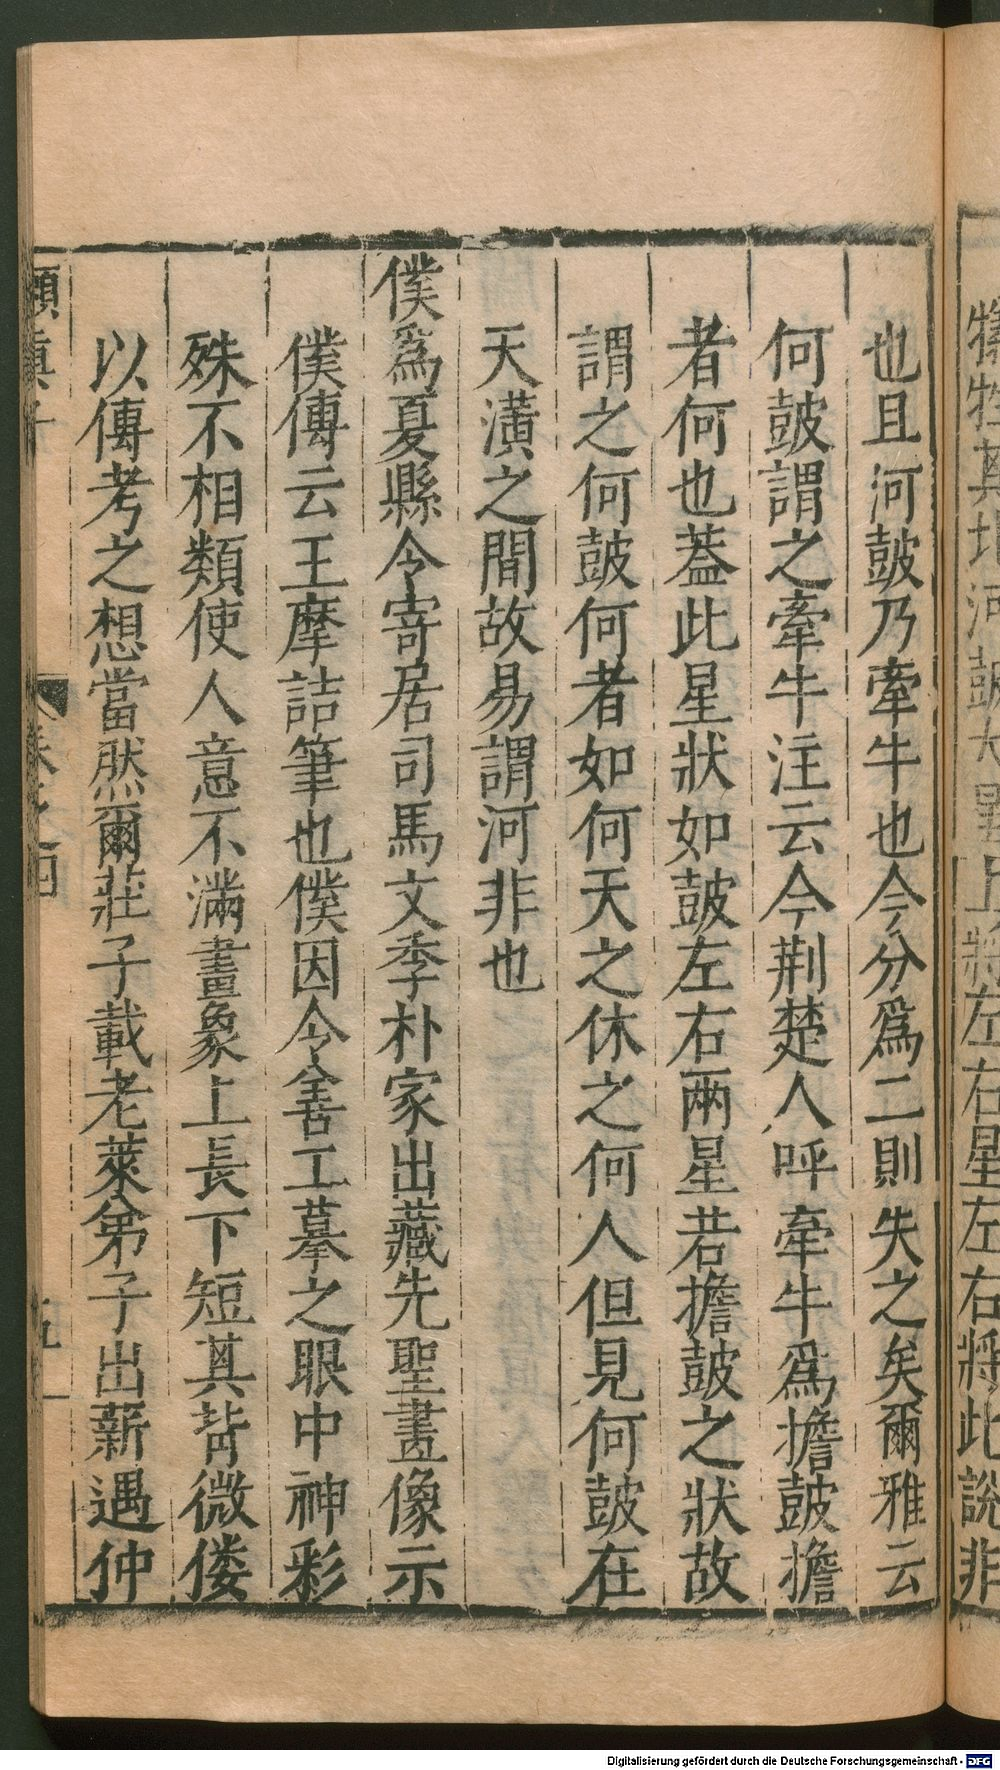 犧牲其北河鼓大星上將左右星左右將此說非
也且河鼓乃牽牛也今分爲二則失之矣爾雅云
何鼓謂之牽牛注云今荆楚人呼牽牛爲擔鼓擔
者何也蓋此星狀如鼓左右兩星若擔鼓之狀故
謂之何鼓何者如何天之休之何人但見何鼓在
天潢之間故易謂河非也
僕爲夏縣令寄居司馬文季朴家出藏先聖畫像示
僕傳云王摩詰筆也僕因令善工摹之眼中神彩
殊不相類使人意不滿畫象上長下短其背微僂
以傳考之想當然爾莊子載老萊弟子出薪遇仲
嬾真子
卷之四
五
Digitalisierung gefördert durch die Deutsche Forschungsgemeinschaft - DFG